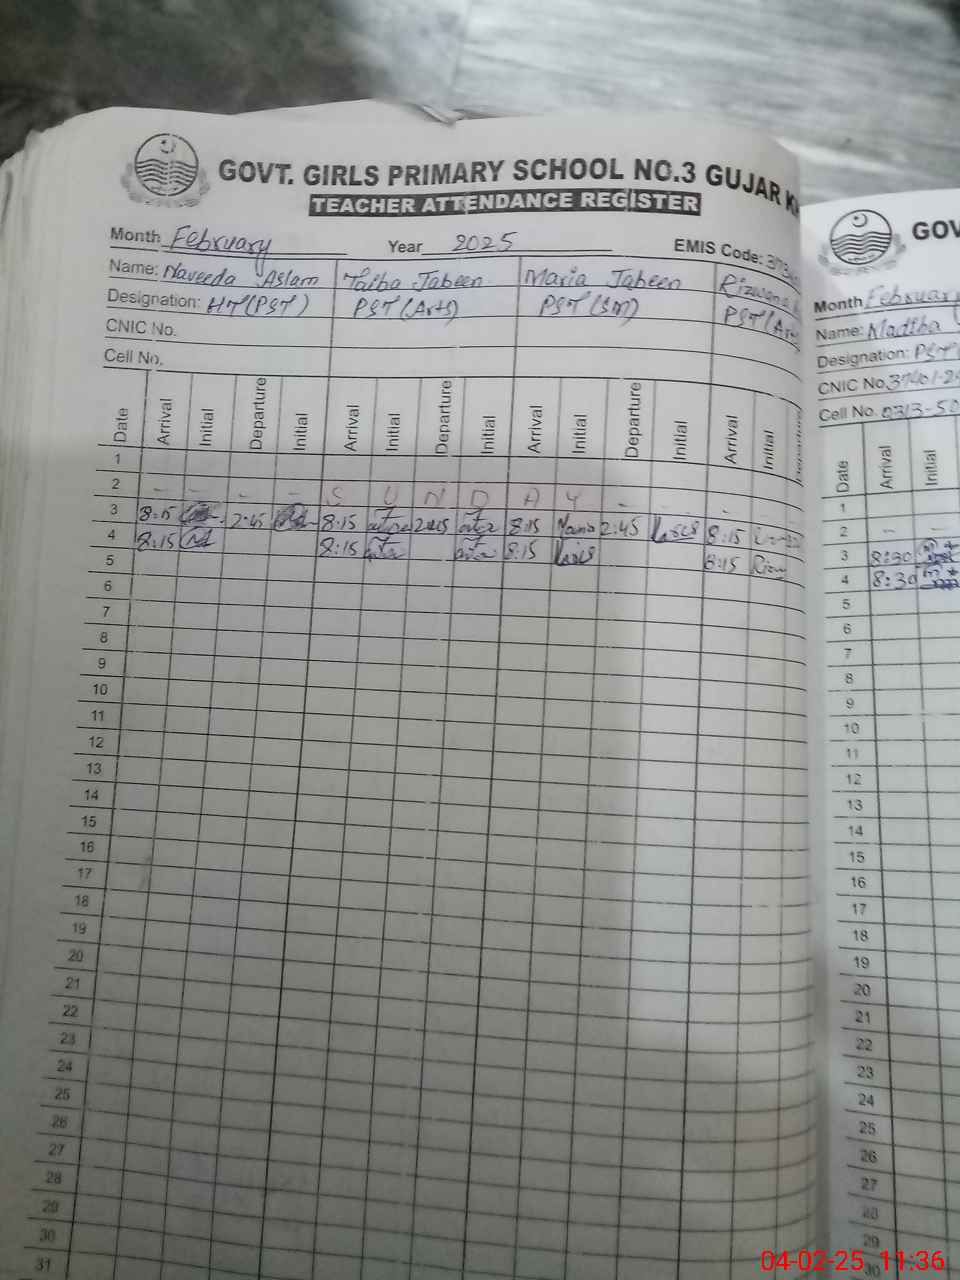 GOVT. GIRLS PRIMARY SCHOOL NO.3 GUJAR
TEACHER ATTENDANCE REGISTER
Month February Year 2025 EMIS Code:
Name: Naveeda Aslam Taiba Jabeen Maria Jabeen Rizwana
Designation: HT(PST) PST(Arts) PST(SM) PST(Ar
CNIC No.
Cell No.
Date Arrival Initial Departure Initial Arrival Initial Departure Initial Arrival Initial Departure Initial Arrival Initial Departure
1
2 - - - - S U N D A Y - -
3 8:15 2:45 8:15 2:45 8:15 Maria 2:45 8:15
4 8:15 8:15 8:15 8:15
5
6
7
8
9
10
11
12
13
14
15
16
17
18
19
20
21
22
23
24
25
26
27
28
29
30
31
GOV
Month February
Name: Madiha
Designation: PST(
CNIC No. 37401-2
Cell No. 0313-50
Date Arrival Initial
1
2 - -
3 8:30
4 8:30
5
6
7
8
9
10
11
12
13
14
15
16
17
18
19
20
21
22
23
24
25
26
27
28
29
30
04-02-25 11:36